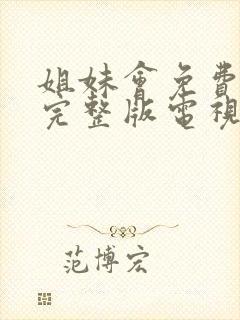 姐妹會免費
完整版電視
范博宏